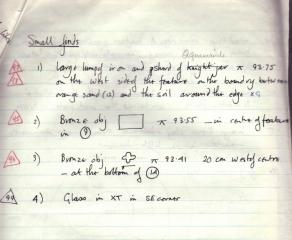 Small finds
1) Large lump of iron and pshard of knight jar π 93.75
on the west side of the feature on the boundry between
orange sand (12) and the soil around the edge
2) Bronze obj π 93.55 – in centre of feature
in 9
3) Bronze obj π 93.41 20 cm west of centre
– at the bottom of 14
4) Glass in XT in SE corner